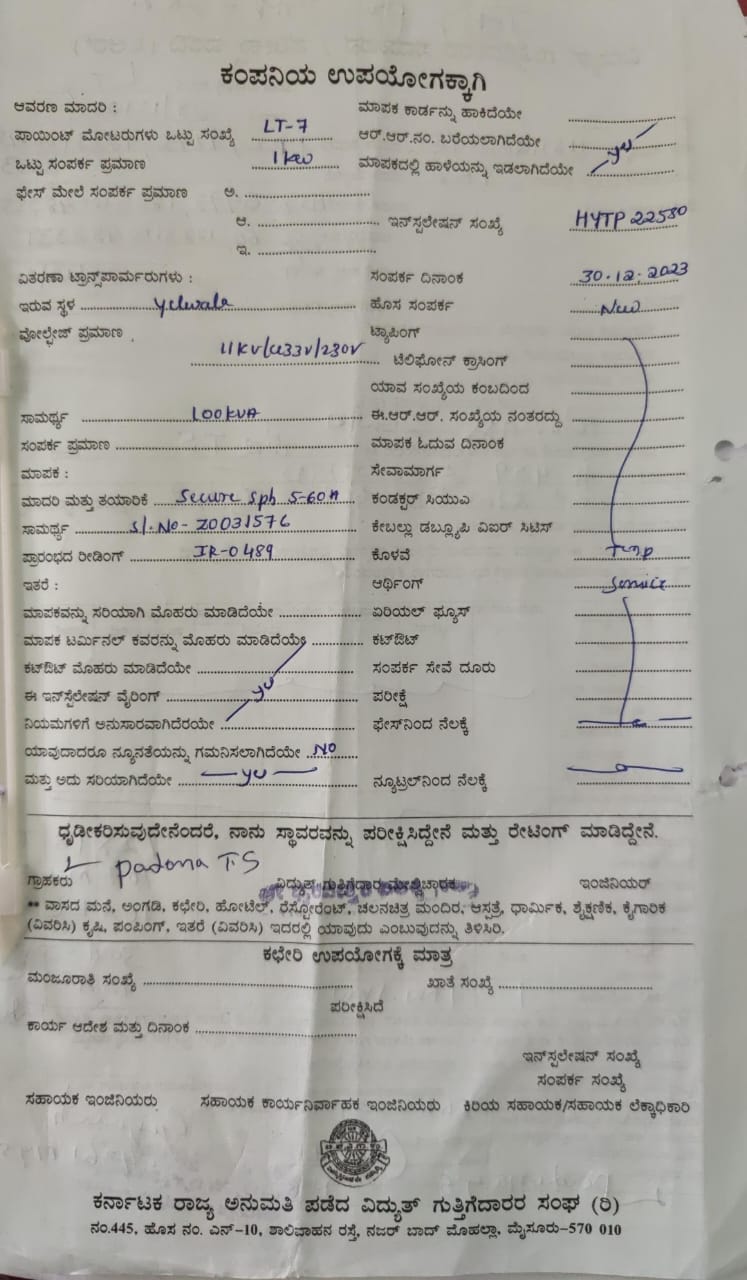 ಕಂಪನಿಯ ಉಪಯೋಗಕ್ಕಾಗಿ
ಆವರಣ ಮಾದರಿ :
ಪಾಯಿಂಟ್ ಮೋಟರುಗಳು ಒಟ್ಟು ಸಂಖ್ಯೆ LT-7
ಒಟ್ಟು ಸಂಪರ್ಕ ಪ್ರಮಾಣ 1 KW
ಫೇಸ್ ಮೇಲೆ ಸಂಪರ್ಕ ಪ್ರಮಾಣ ಅ.
ಆ.
ಇ.
ಮಾಪಕ ಕಾರ್ಡನ್ನು ಹಾಕಿದೆಯೇ
ಆರ್.ಆರ್.ನಂ. ಬರೆಯಲಾಗಿದೆಯೇ
ಮಾಪಕದಲ್ಲಿ ಹಾಳೆಯನ್ನು ಇಡಲಾಗಿದೆಯೇ yes
ಇನ್‌ಸ್ಟಲೇಷನ್ ಸಂಖ್ಯೆ HYTP 22530
ವಿತರಣಾ ಟ್ರಾನ್ಸ್‌ಪಾರ್ಮರುಗಳು :
ಇರುವ ಸ್ಥಳ Yelwala
ವೋಲ್ಟೇಜ್ ಪ್ರಮಾಣ 11KV/433V/230V
ಸಾಮರ್ಥ್ಯ 100KVA
ಸಂಪರ್ಕ ಪ್ರಮಾಣ
ಮಾಪಕ :
ಮಾದರಿ ಮತ್ತು ತಯಾರಿಕೆ Secure Sph 5-60A
ಸಾಮರ್ಥ್ಯ Sl.No- Z0031576
ಪ್ರಾರಂಭದ ರೀಡಿಂಗ್ IR-0489
ಇತರೆ :
ಮಾಪಕವನ್ನು ಸರಿಯಾಗಿ ಮೊಹರು ಮಾಡಿದೆಯೇ
ಮಾಪಕ ಟರ್ಮಿನಲ್ ಕವರನ್ನು ಮೊಹರು ಮಾಡಿದೆಯೇ
ಕಟ್‌ಔಟ್ ಮೊಹರು ಮಾಡಿದೆಯೇ
ಈ ಇನ್‌ಸ್ಟೆಲೇಷನ್ ವೈರಿಂಗ್ yes
ನಿಯಮಗಳಿಗೆ ಅನುಸಾರವಾಗಿದೆರಯೇ
ಯಾವುದಾದರೂ ನ್ಯೂನತೆಯನ್ನು ಗಮನಿಸಲಾಗಿದೆಯೇ NO
ಮತ್ತು ಅದು ಸರಿಯಾಗಿದೆಯೇ yes
ಸಂಪರ್ಕ ದಿನಾಂಕ 30.12.2023
ಹೊಸ ಸಂಪರ್ಕ New
ಟ್ಯಾಪಿಂಗ್
ಟೆಲಿಫೋನ್ ಕ್ರಾಸಿಂಗ್
ಯಾವ ಸಂಖ್ಯೆಯ ಕಂಬದಿಂದ
ಈ.ಆರ್.ಆರ್. ಸಂಖ್ಯೆಯ ನಂತರದ್ದು
ಮಾಪಕ ಓದುವ ದಿನಾಂಕ
ಸೇವಾಮಾರ್ಗ
ಕಂಡಕ್ಟರ್ ಸಿಯುಎ
ಕೇಬಲ್ಲು ಡಬ್ಲ್ಯೂಪಿ ವಿಐರ್ ಸಿಟಿಸ್
ಕೊಳವೆ Temp
ಆರ್ಥಿಂಗ್ Service
ಏರಿಯಲ್ ಫ್ಯೂಸ್
ಕಟ್‌ಔಟ್
ಸಂಪರ್ಕ ಸೇವೆ ದೂರು
ಪರೀಕ್ಷೆ
ಫೇಸ್‌ನಿಂದ ನೆಲಕ್ಕೆ
ನ್ಯೂಟ್ರಲ್‌ನಿಂದ ನೆಲಕ್ಕೆ
ಧೃಡೀಕರಿಸುವುದೇನೆಂದರೆ, ನಾನು ಸ್ಥಾವರವನ್ನು ಪರೀಕ್ಷಿಸಿದ್ದೇನೆ ಮತ್ತು ರೇಟಿಂಗ್ ಮಾಡಿದ್ದೇನೆ.
Padma T.S
ಗ್ರಾಹಕರು ವಿದ್ಯುತ್ ಗುತ್ತಿಗೆದಾರ ಮೇಲ್ವಿಚಾರಕ ಇಂಜಿನಿಯರ್
** ವಾಸದ ಮನೆ, ಅಂಗಡಿ, ಕಛೇರಿ, ಹೋಟೆಲ್, ರೆಸ್ಟೋರೆಂಟ್, ಚಲನಚಿತ್ರ ಮಂದಿರ, ಆಸ್ಪತ್ರೆ, ಧಾರ್ಮಿಕ, ಶೈಕ್ಷಣಿಕ, ಕೈಗಾರಿಕ
(ವಿವರಿಸಿ) ಕೃಷಿ, ಪಂಪಿಂಗ್, ಇತರೆ (ವಿವರಿಸಿ) ಇದರಲ್ಲಿ ಯಾವುದು ಎಂಬುವುದನ್ನು ತಿಳಿಸಿರಿ.
ಕಛೇರಿ ಉಪಯೋಗಕ್ಕೆ ಮಾತ್ರ
ಮಂಜೂರಾತಿ ಸಂಖ್ಯೆ ಖಾತೆ ಸಂಖ್ಯೆ
ಪರೀಕ್ಷಿಸಿದೆ
ಕಾರ್ಯ ಆದೇಶ ಮತ್ತು ದಿನಾಂಕ
ಇನ್‌ಸ್ಟಲೇಷನ್ ಸಂಖ್ಯೆ
ಸಂಪರ್ಕ ಸಂಖ್ಯೆ
ಸಹಾಯಕ ಇಂಜಿನಿಯರು ಸಹಾಯಕ ಕಾರ್ಯನಿರ್ವಾಹಕ ಇಂಜಿನಿಯರು ಕಿರಿಯ ಸಹಾಯಕ/ಸಹಾಯಕ ಲೆಕ್ಕಾಧಿಕಾರಿ
ಕರ್ನಾಟಕ ರಾಜ್ಯ ಅನುಮತಿ ಪಡೆದ ವಿದ್ಯುತ್ ಗುತ್ತಿಗೆದಾರರ ಸಂಘ (ರಿ)
ನಂ.445, ಹೊಸ ನಂ. ಎನ್-10, ಶಾಲಿವಾಹನ ರಸ್ತೆ, ನಜರ್ ಬಾದ್ ಮೊಹಲ್ಲಾ, ಮೈಸೂರು-570 010